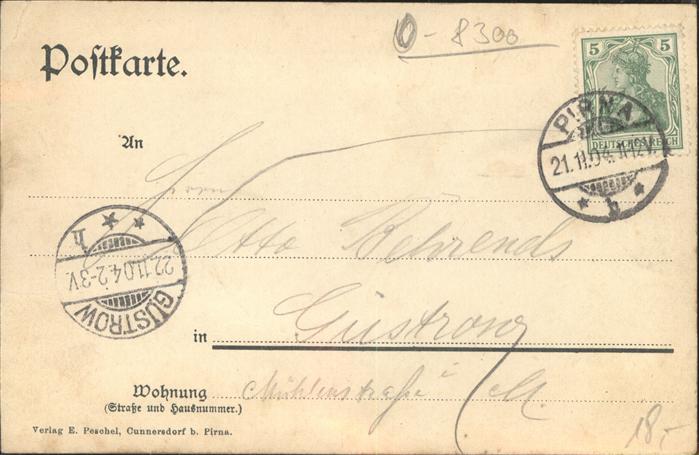 Postkarte.
0-8300
5 5
DEUTSCHES REICH
PIRNA
21.11.04. 11-12V.
* h *
An
Herrn
Otto Behrends
in Güstrow
Wohnung Mühlenstraße
(Straße und Hausnummer.)
GÜSTROW
22.11.04.2-3V.
* h *
Verlag E. Peschel, Cunnersdorf b. Pirna.
18,-